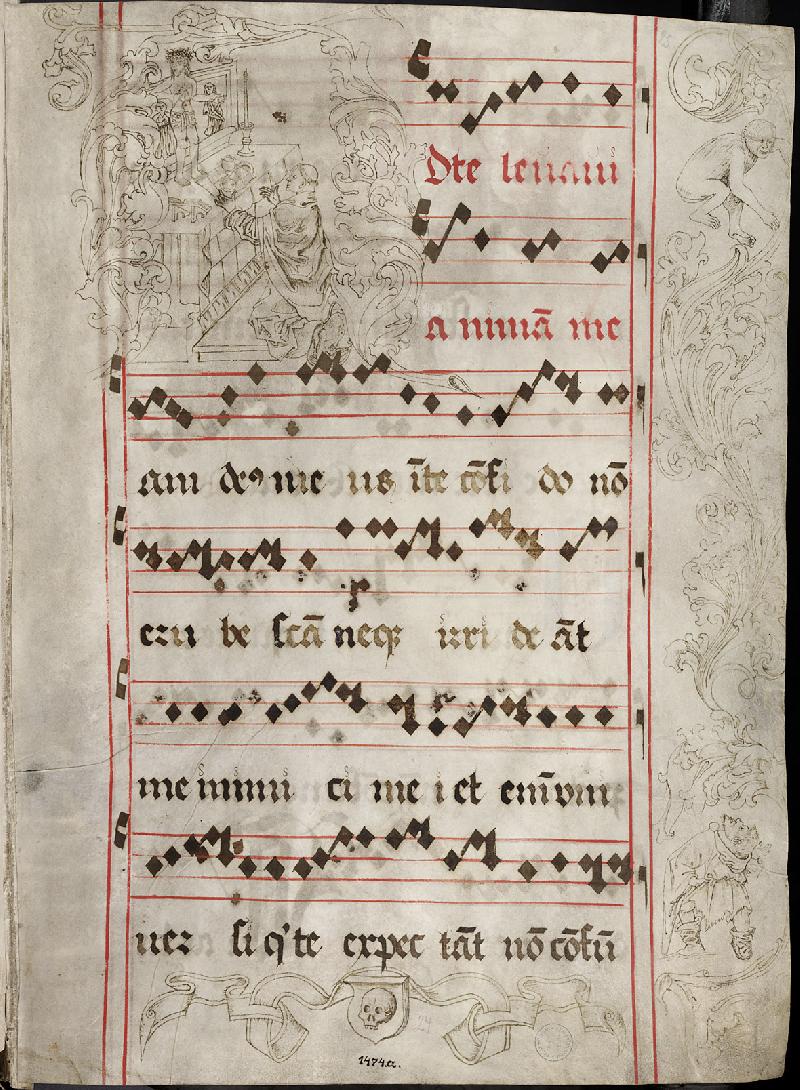 dte leuaui
animā me
am deꝰ meus ī te cōfi do nō
eru be scā neqꝫ irri de āt
me inimi ci me i et enī vniꝩ
uer si q' te expec tāt nō cōfū
1474.a.